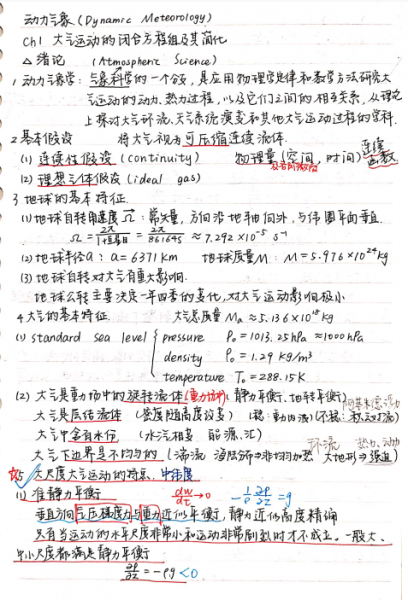 动力气象 (Dynamic Meteorology)
Ch1 大气运动的闭合方程组及其简化
△ 绪论 (Atmospheric Science)
1. 动力气象学: 气象科学的一个分支, 是应用物理学定律和数学方法研究大
气运动的动力、热力过程, 以及它们之间的相互关系, 从理论
上探讨大气环流、天气系统演变和其他大气运动过程的学科.
2. 基本假设 将大气视为可压缩连续流体.
(1) 连续性假设 (continuity) 物理量(空间, 时间) 连续函数
(2) 理想气体假设 (ideal gas)
3. 地球的基本特征.
(1) 地球自转角速度 Ω: 常矢量, 方向沿地轴向外, 与纬圈平面垂直.
Ω = 2π/1恒星日 = 2π/86164s ≈ 7.292 ×10⁻⁵ s⁻¹
(2) 地球半径a: a = 6371 km 地球质量M: M = 5.976×10²⁴ kg
(3) 地球自转对大气有重大影响.
地球公转主要决定一年四季的变化, 对大气运动影响极小
4. 大气的基本特征. 大气总质量 Ma ≈ 5.136×10¹⁸ kg
(1) standard sea level { pressure P₀ = 1013.25hPa ≈1000hPa
density ρ₀ = 1.29 kg/m³
temperature T₀ = 288.15K
(2) 大气是重力场中的旋转流体(重力场中) (静力平衡, 地转平衡)
大气是层结流体 (密度随高度改变)
大气中含有水份 (水汽相变 能源、汇)
大气下边界是不均匀的 (湍流 海陆分布⇒非均匀加热 大地形⇒强迫) 环流 热力、动力
☆5 大尺度大气运动的特点. 中纬度
(1) 准静力平衡 dw/dt → 0 -1/ρ ∂p/∂z = g
垂直方向气压梯度力与重力近似平衡, 静力近似高度精确
只有当运动的水平尺度非常小和运动非常剧烈时才不成立. 一般大、
中小尺度都满足静力平衡
∂p/∂z = -ρg <0